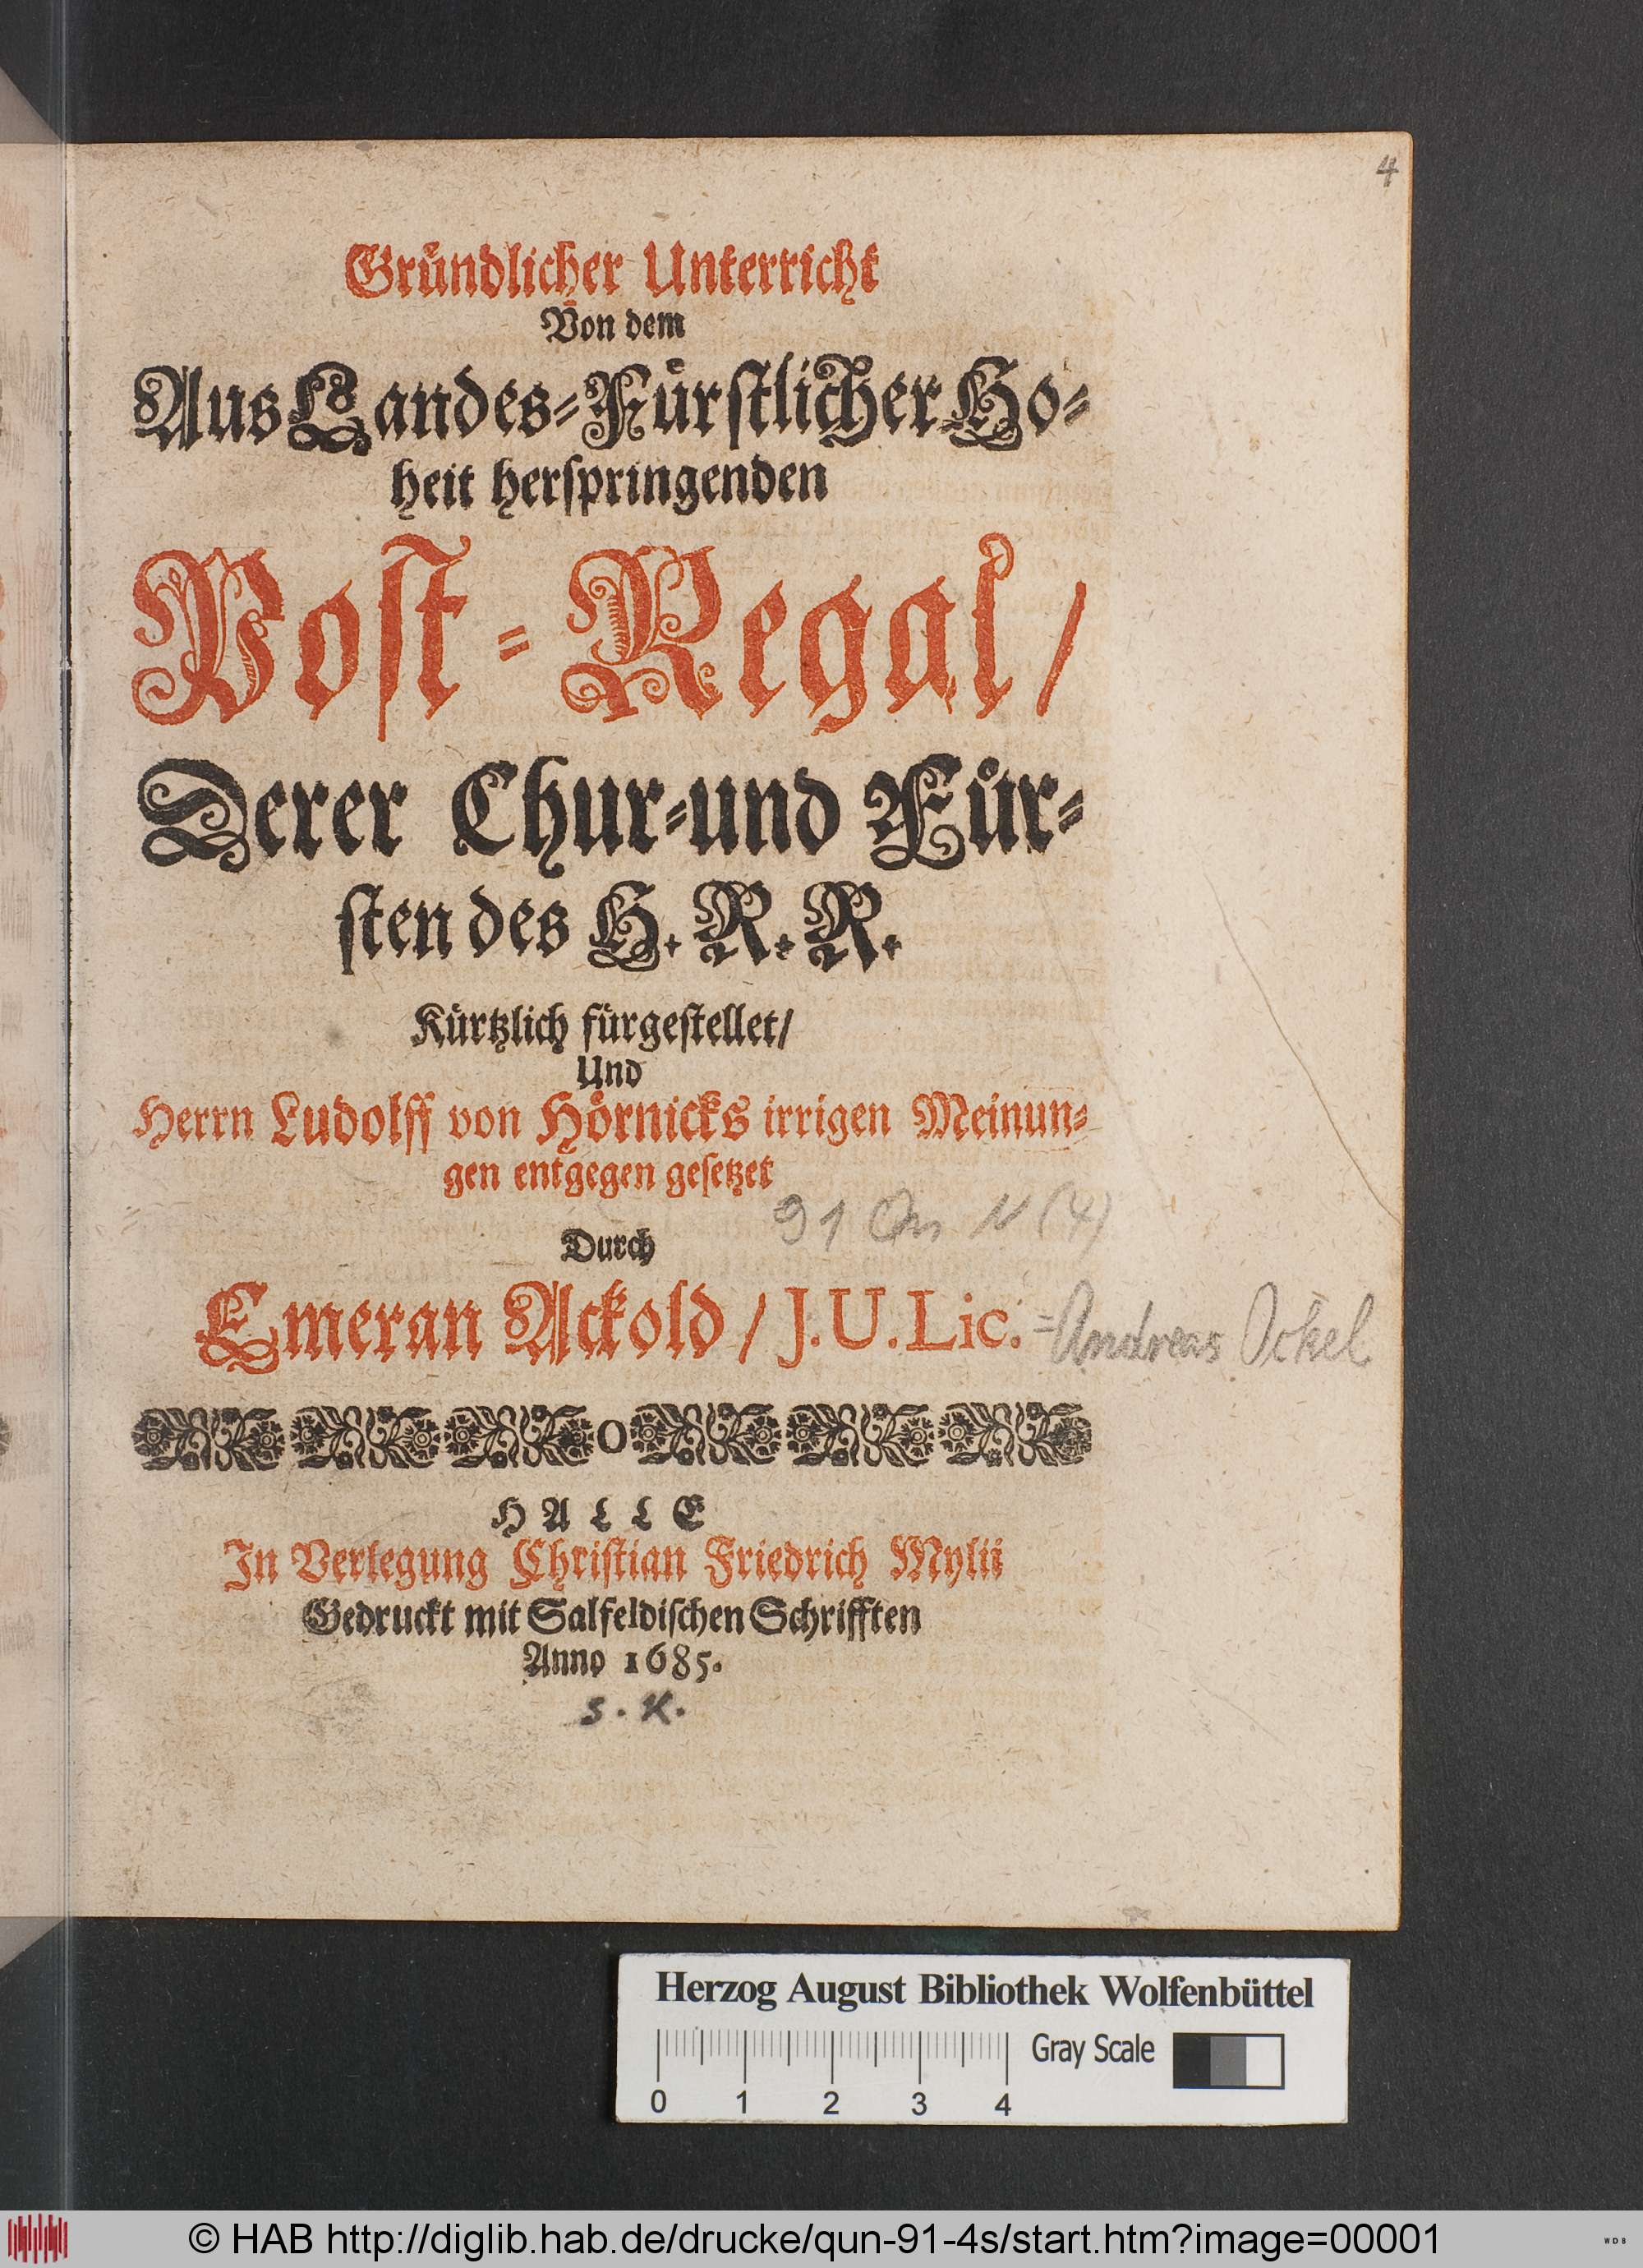 4
Gründlicher Unterricht
Von dem
Aus Landes-Fürstlicher Ho-
heit herspringenden
Post-Regal/
Derer Chur-und Für-
sten des H. R. R.
Kürtzlich fürgestellet/
Und
Herrn Ludolff von Hörnicks irrigen Meinun-
gen entgegen gesetzet
91 Qu N (4)
Durch
Emeran Ackold / J.U.Lic. =Andreas Ockel
HALLE
In Verlegung Christian Friedrich Mylii
Gedruckt mit Salfeldischen Schrifften
Anno 1685.
s. K.
Herzog August Bibliothek Wolfenbüttel
Gray Scale
0 1 2 3 4
© HAB http://diglib.hab.de/drucke/qun-91-4s/start.htm?image=00001
WDB